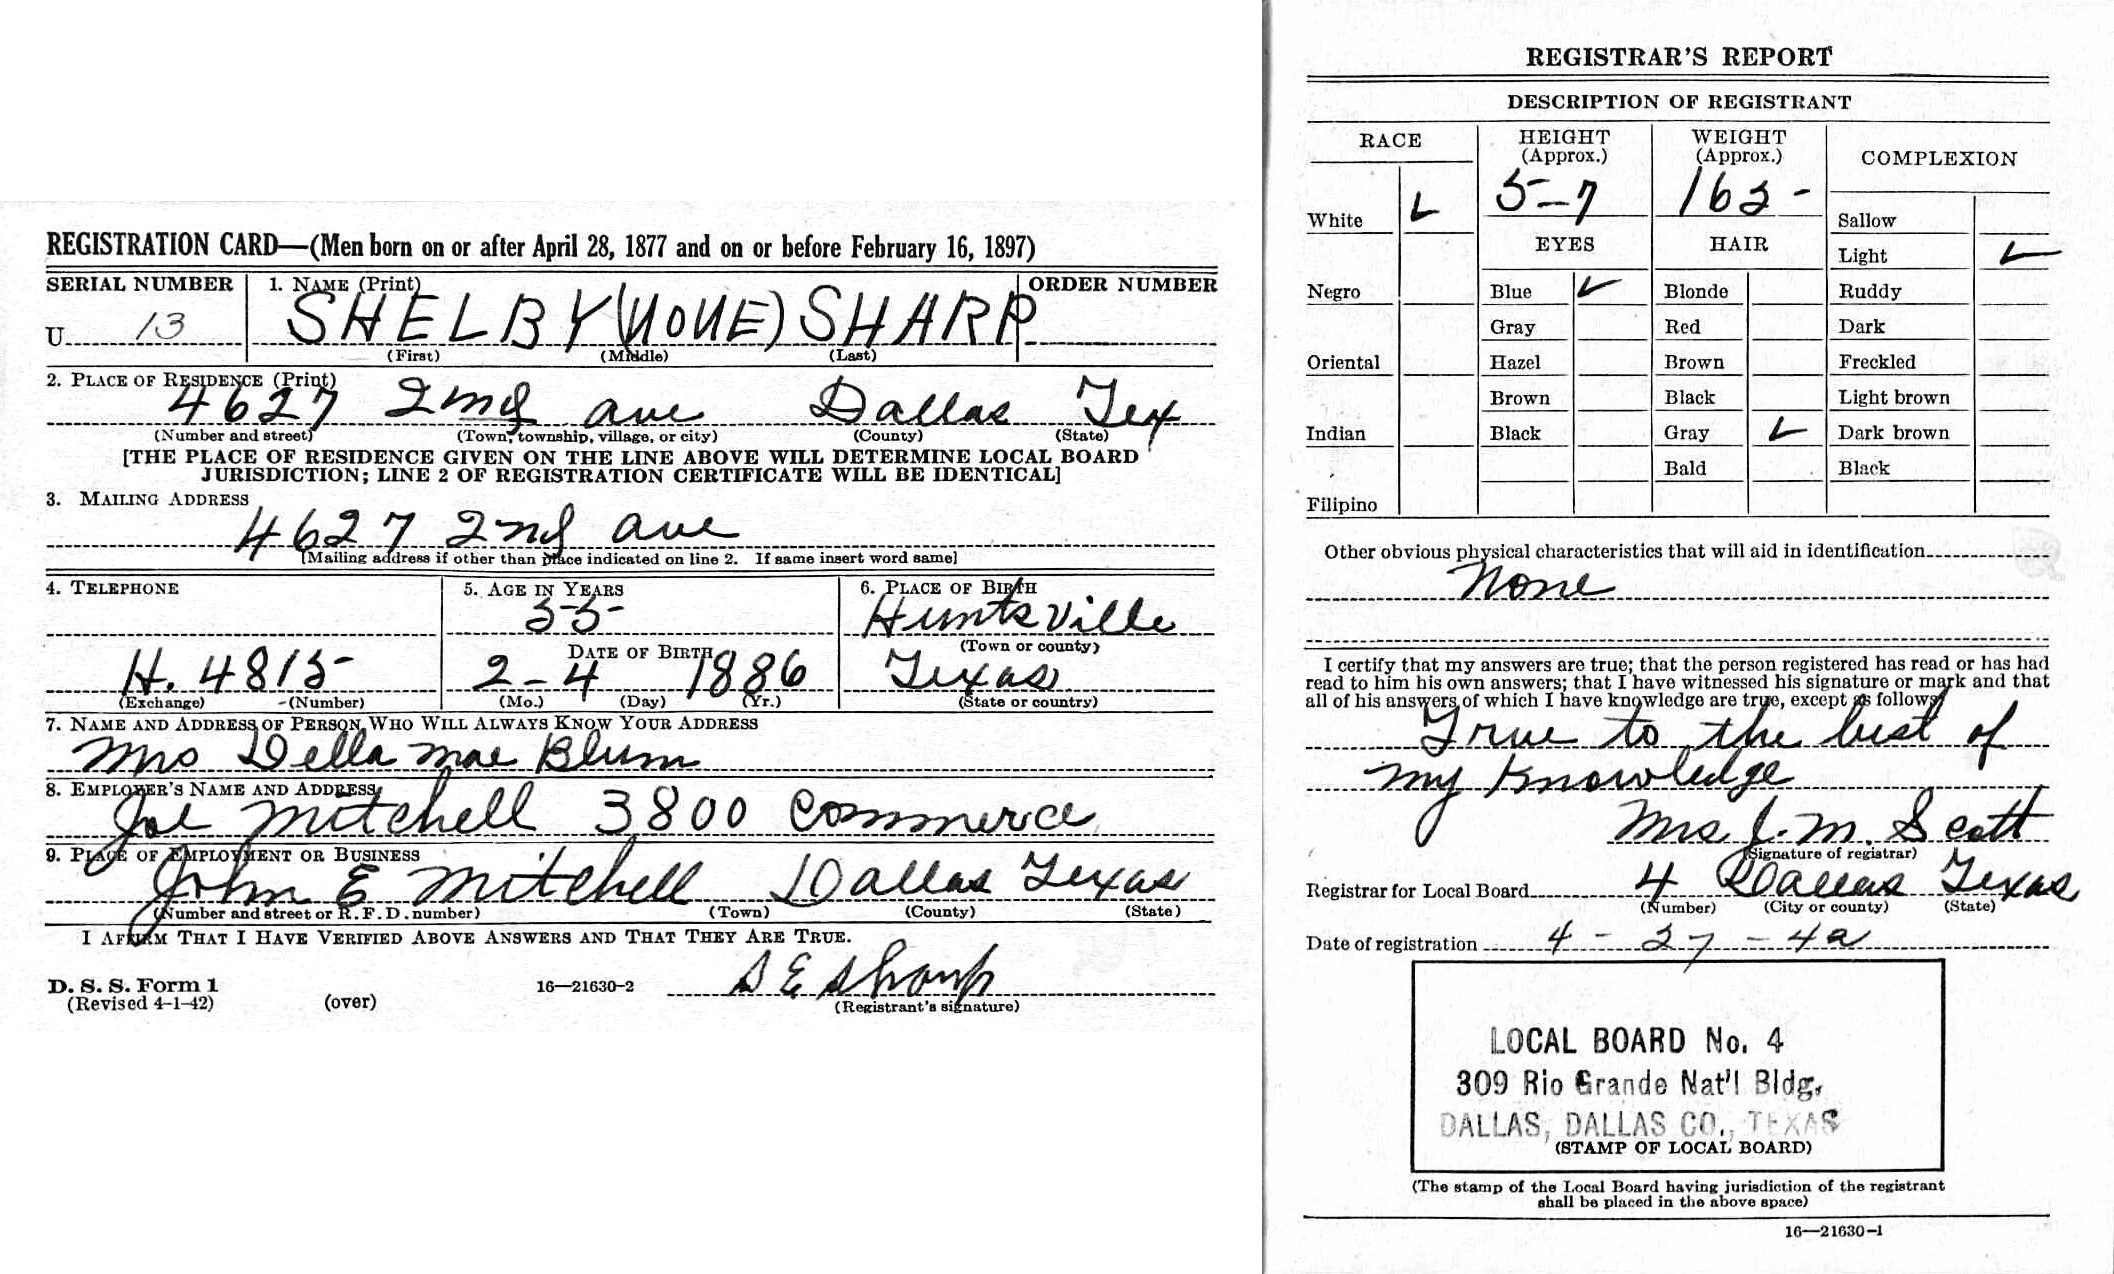 REGISTRATION CARD—(Men born on or after April 28, 1877 and on or before February 16, 1897)
SERIAL NUMBER 1. NAME (Print) ORDER NUMBER
U 13 SHELBY (NONE) SHARP
(First) (Middle) (Last)
2. PLACE OF RESIDENCE (Print)
4627 2nd ave Dallas Tex
(Number and street) (Town, township, village, or city) (County) (State)
[THE PLACE OF RESIDENCE GIVEN ON THE LINE ABOVE WILL DETERMINE LOCAL BOARD
JURISDICTION; LINE 2 OF REGISTRATION CERTIFICATE WILL BE IDENTICAL]
3. MAILING ADDRESS
4627 2nd ave
[Mailing address if other than place indicated on line 2. If same insert word same]
4. TELEPHONE 5. AGE IN YEARS 6. PLACE OF BIRTH
55 Huntsville
DATE OF BIRTH (Town or county)
H. 4815 2-4 1886 Texas
(Exchange) (Number) (Mo.) (Day) (Yr.) (State or country)
7. NAME AND ADDRESS OF PERSON WHO WILL ALWAYS KNOW YOUR ADDRESS
Mrs Della mae Blum
8. EMPLOYER'S NAME AND ADDRESS
Joe Mitchell 3800 Commerce
9. PLACE OF EMPLOYMENT OR BUSINESS
John E Mitchell Dallas Texas
(Number and street or R. F. D. number) (Town) (County) (State)
I AFFIRM THAT I HAVE VERIFIED ABOVE ANSWERS AND THAT THEY ARE TRUE.
S E Sharp
D. S. S. Form 1 16—21630-2
(Revised 4-1-42) (over) (Registrant's signature)
REGISTRAR'S REPORT
DESCRIPTION OF REGISTRANT
RACE HEIGHT WEIGHT COMPLEXION
(Approx.) (Approx.)
5-7
White Sallow
EYES HAIR
Light
Negro Blue Blonde Ruddy
Gray Red Dark
Oriental Hazel Brown Freckled
Brown Black Light brown
Indian Black Gray Dark brown
Bald Black
Filipino
Other obvious physical characteristics that will aid in identification
None
I certify that my answers are true; that the person registered has read or has had
read to him his own answers; that I have witnessed his signature or mark and that
all of his answers of which I have knowledge are true, except as follows:
True to the best of
my knowledge
Mrs J. M. Scott
(Signature of registrar)
Registrar for Local Board 4 Dallas Texas
(Number) (City or county) (State)
Date of registration 4-27-42
LOCAL BOARD No. 4
309 Rio Grande Nat'l Bldg.
DALLAS, DALLAS CO., TEXAS
(STAMP OF LOCAL BOARD)
(The stamp of the Local Board having jurisdiction of the registrant
shall be placed in the above space)
16—21630-1